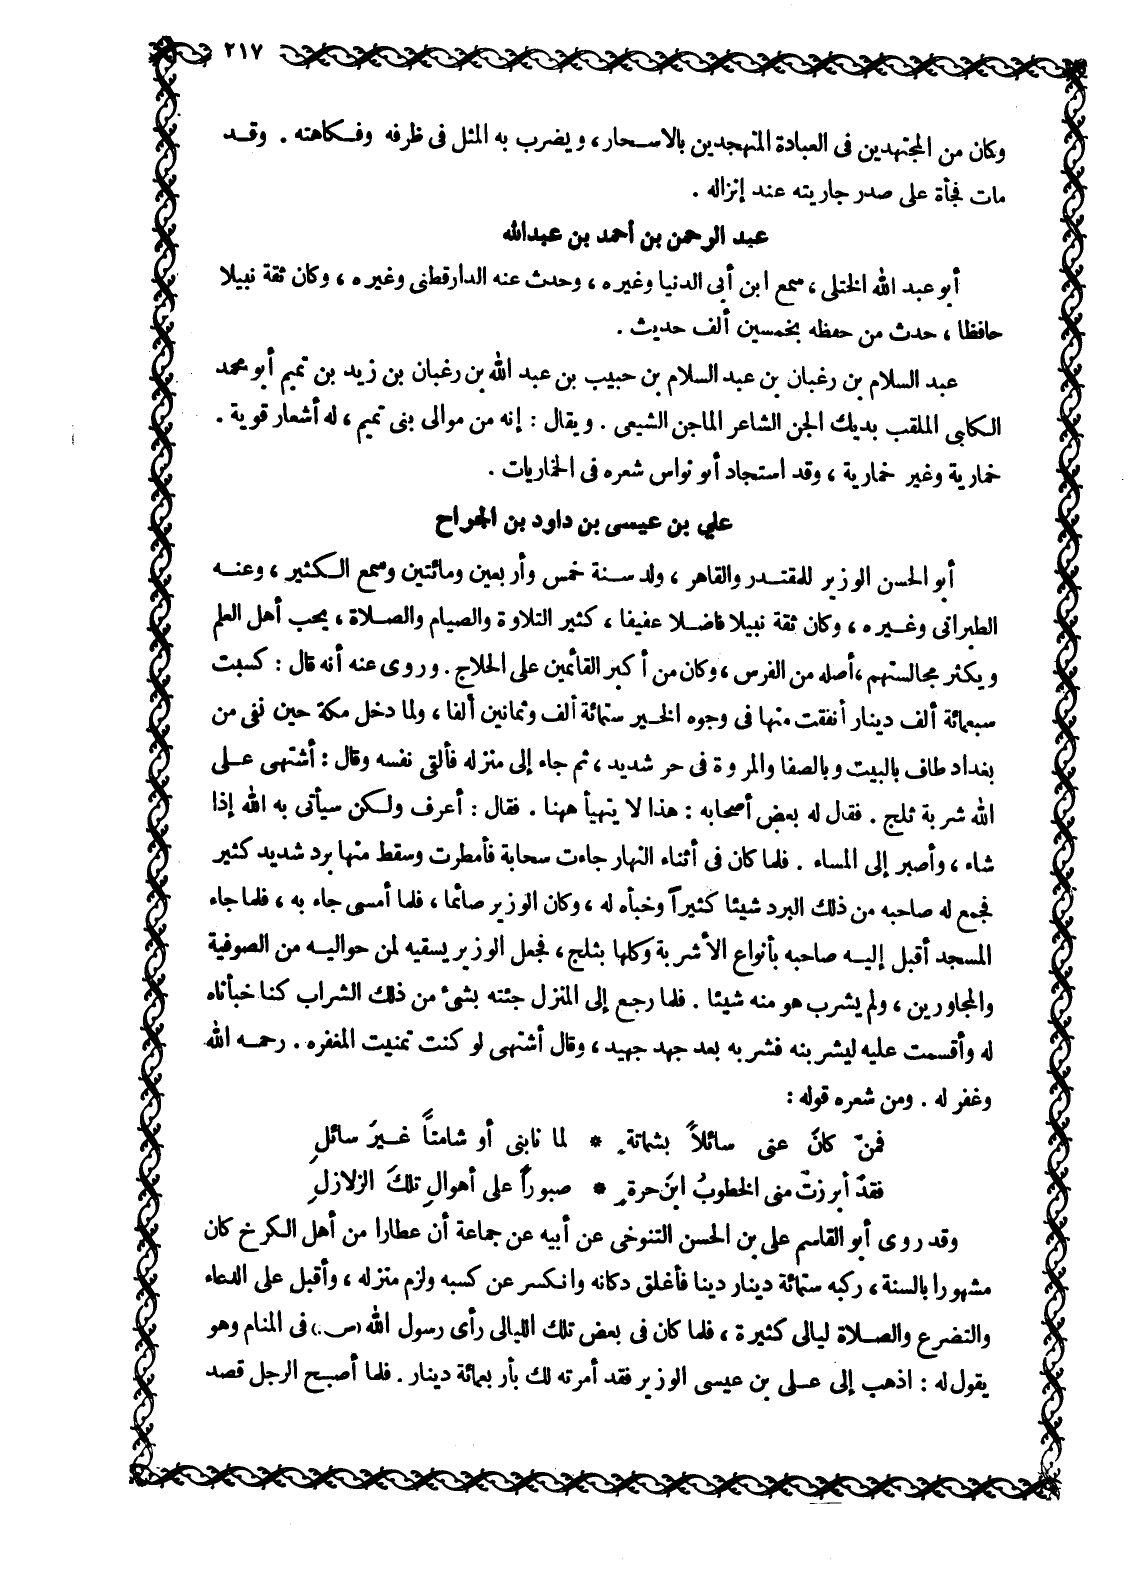 ٢١٧
وكان من المجتهدين فى العبادة المتهجدين بالاسحار، ويضرب به المثل فى ظرفه وفكاهته . وقد
مات فجأة على صدر جاريته عند إنزاله .
عبد الرحمن بن أحمد بن عبدالله
أبو عبد الله الختلى ، سمع ابن أبى الدنيا وغيره ، وحدث عنه الدارقطنى وغيره ، وكان ثقة نبيلا
حافظا ، حدث من حفظه بخمسين ألف حديث .
عبد السلام بن رغبان بن عبد السلام بن حبيب بن عبد الله بن رغبان بن زيد بن تميم أبو محمد
الكابى الملقب بديك الجن الشاعر الماجن الشيعى . ويقال : إنه من موالى بنى تميم ، له أشعار قوية .
خمارية وغير خمارية ، وقد استجاد أبو نواس شعره فى الخماريات .
علي بن عيسى بن داود بن الجراح
أبو الحسن الوزير للمقتدر والقاهر ، ولد سنة خمس وأربعين ومائتين وسمع الكثير ، وعنه
الطبرانى وغيره ، وكان ثقة نبيلا فاضلا عفيفا ، كثير التلاوة والصيام والصلاة ، يحب أهل العلم
ويكثر مجالستهم ،أصله من الفرس ، وكان من أكبر القائمين على الحلاج . وروى عنه أنه قال : كسبت
سبعمائة ألف دينار أنفقت منها فى وجوه الخير ستمائة ألف وثمانين ألفا ، ولما دخل مكة حين نفى من
بغداد طاف بالبيت وبالصفا والمروة فى حر شديد ، ثم جاء إلى منزله فألقى نفسه وقال : أشتهى على
الله شربة ثلج . فقال له بعض أصحابه : هذا لا يتهيأ ههنا . فقال : أعرف ولكن سيأتى به الله إذا
شاء ، وأصبر إلى المساء . فلما كان فى أثناء النهار جاءت سحابة فأمطرت وسقط منها برد شديد كثير
فجمع له صاحبه من ذلك البرد شيئا كثيراً وخبأه له ، وكان الوزير صائما ، فلما أمسى جاء به ، فلما جاء
المسجد أقبل إليه صاحبه بأنواع الأشربة وكلها بثلج ، فجعل الوزير يسقيه لمن حواليه من الصوفية
والمجاورين ، ولم يشرب هو منه شيئا . فلما رجع إلى المنزل جئته بشئ من ذلك الشراب كنا خبأناه
له وأقسمت عليه ليشربنه فشربه بعد جهد جهيد ، وقال أشتهى لو كنت تمنيت المغفره . رحمه الله
وغفر له . ومن شعره قوله :
فمنْ كانَ عنى سائلاً بشماتةٍ * لما نابنى أو شامتاً غيرَ سائلِ
فقدْ أبرزتْ منى الخطوبُ ابنَ حرةٍ * صبوراً على أهوالِ تلكَ الزلازلِ
وقد روى أبو القاسم على بن الحسن التنوخى عن أبيه عن جماعة أن عطارا من أهل الكرخ كان
مشهورا بالسنة ، ركبه ستمائة دينار دينا فأغلق دكانه وانكسر عن كسبه ولزم منزله ، وأقبل على الدعاء
والتضرع والصلاة ليالى كثيرة ، فلما كان فى بعض تلك الليالى رأى رسول الله (ص.) فى المنام وهو
يقول له : اذهب إلى على بن عيسى الوزير فقد أمرته لك بأربعمائة دينار . فلما أصبح الرجل قصد